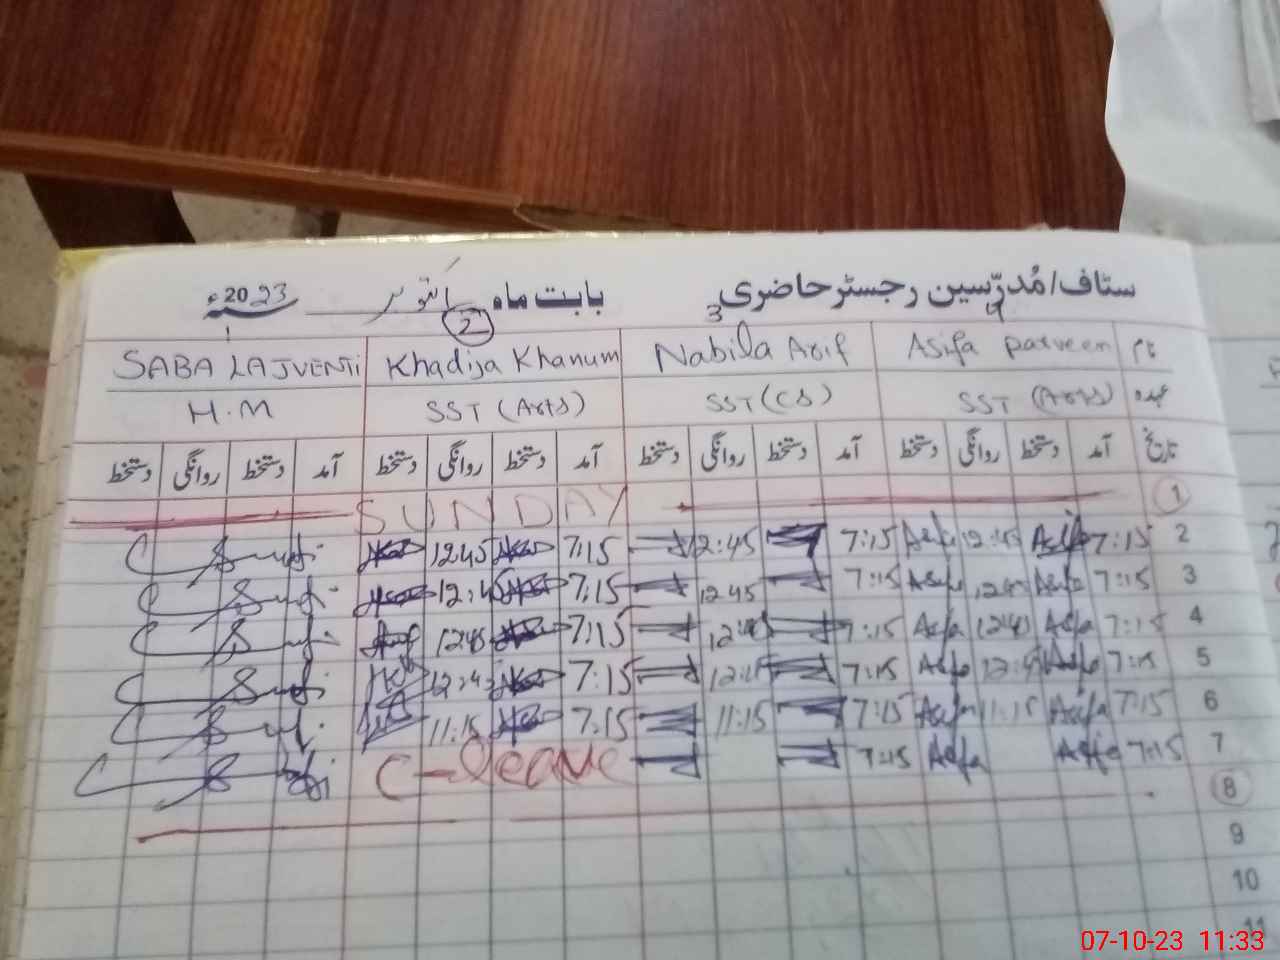 سٹاف/مُدرّسین رجسٹر حاضری بابت ماہ اکتوبر 2023ء
4 3 2 1
نام Asifa parveen Nabila Arif Khadija Khanum SABA LAJVENTI
عہدہ SST (Arts) SST (CS) SST (Arts) H.M
تاریخ آمد دستخط روانگی دستخط آمد دستخط روانگی دستخط آمد دستخط روانگی دستخط آمد دستخط روانگی دستخط
1 SUNDAY
2 7:15 Asifa 12:45 Asifa 7:15 12:45 7:15 12:45
3 7:15 Asifa 12:45 Asifa 7:15 12:45 7:15 12:45
4 7:15 Asifa 12:45 Asifa 7:15 12:45 7:15 12:45
5 7:15 Asifa 12:45 Asifa 7:15 12:45 7:15 12:45
6 7:15 Asifa 11:15 Asifa 7:15 11:15 7:15 11:15
7 7:15 Asifa Asifa 7:15 C-leave
8
9
10
11
07-10-23 11:33